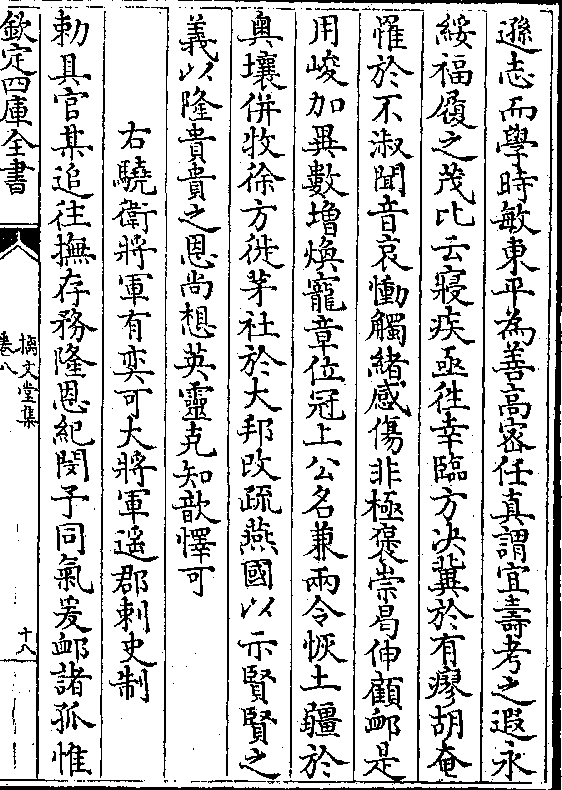 遜志而學時敏東平為善高宻任真謂宜壽考之遐永
綏福履之茂比云寢疾亟往幸臨方決冀於有瘳胡奄
罹於不淑聞音哀慟觸緒感傷非極褒崇曷伸顧䘏是
用峻加異數増煥寵章位冠上公名兼兩令恢土疆於
奥壤併牧徐方徙茅社於大邦改疏燕國以示賢賢之
義以隆貴貴之恩尚想英靈克知歆懌可
右驍衛將軍有奕可大將軍遥郡刺史制
勅具官某追往撫存務隆恩紀閔予同氣爰䘏諸孤惟
欽定四庫全書
摛文堂集
卷八
十八